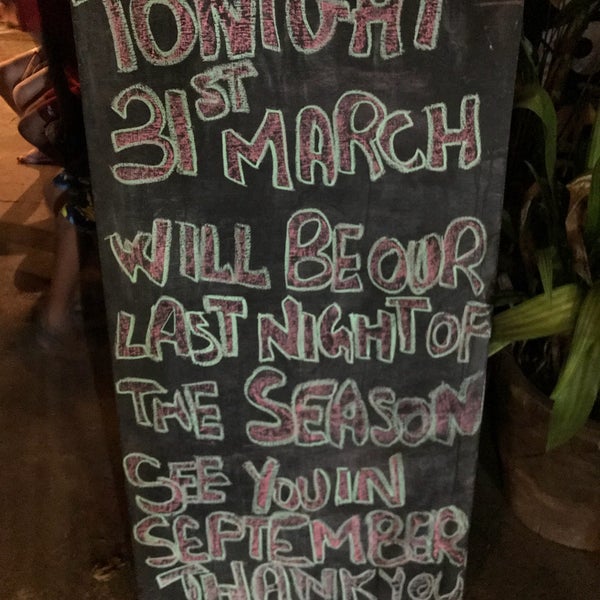 TONIGHT
31ST MARCH
WILL BE OUR
LAST NIGHT OF
THE SEASON
SEE YOU IN
SEPTEMBER
THANK YOU